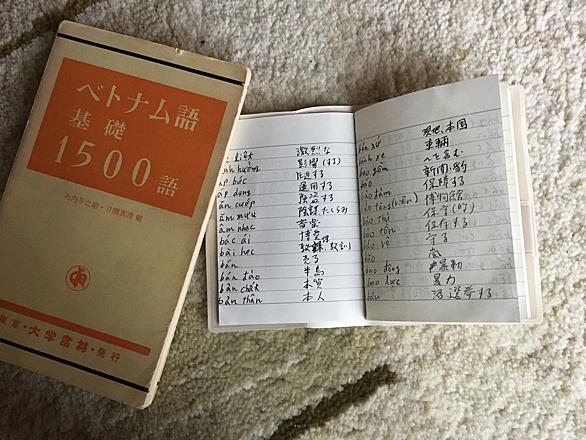 ベトナム語
基礎
1500
語
竹内与之助・日隈真澄 編
東京・大学書林・発行
激烈な
ảnh hưởng 影響(する)
áp bức 圧迫する
áp dụng 適用する
ăn cướp 強盗する
âm mưu 陰謀, たくらみ
âm nhạc 音楽
bác ái 博愛
bài học 教訓
bán 売る
bán đảo 半島
bản chất 本質
bản thân 本人
bản xứ 現地, 本国
bánh xe 車輛
bao gồm へを含む
báo 新聞, 豹
bảo đảm 保障する
bảo tàng (viện) 博物館
bảo thủ 保守(的)
bảo tồn 保存する
bảo vệ 守る
bão 嵐
bạo động 暴動
bạo lực 暴力
bầu 選挙する